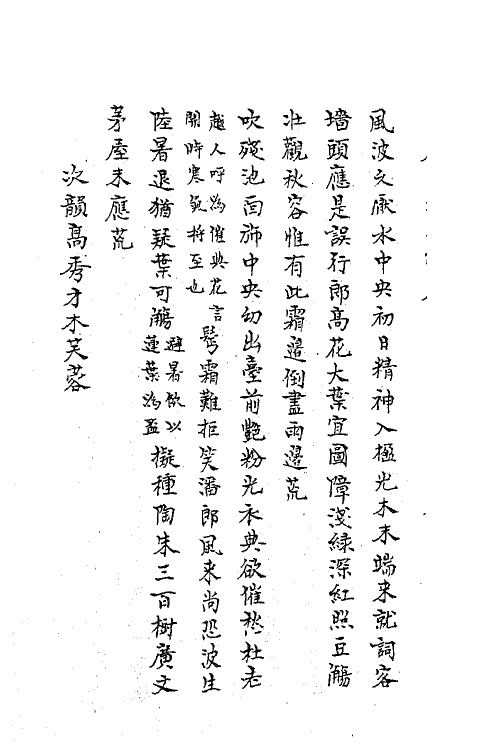 風波文厭水中央初日精神入檻光木末端来就詞客
墻頭應是誤行郎高花大葉宜圖障淺緑深紅照豆觴
壮觀秋容惟有此霜邉倒盡雨邉荒
吹殘池面豄中央幻出臺前艶粉光衣典欲催愁杜老
越人呼為催典花言
開時寒氣将至也
鬂霜難拒笑潘郎風来尚恐波生
陸暑退猶疑葉可觴
避暑飲以
蓮葉為盃
擬種陶朱三百樹廣文
茅屋未應荒
次韻高秀才木芙蓉